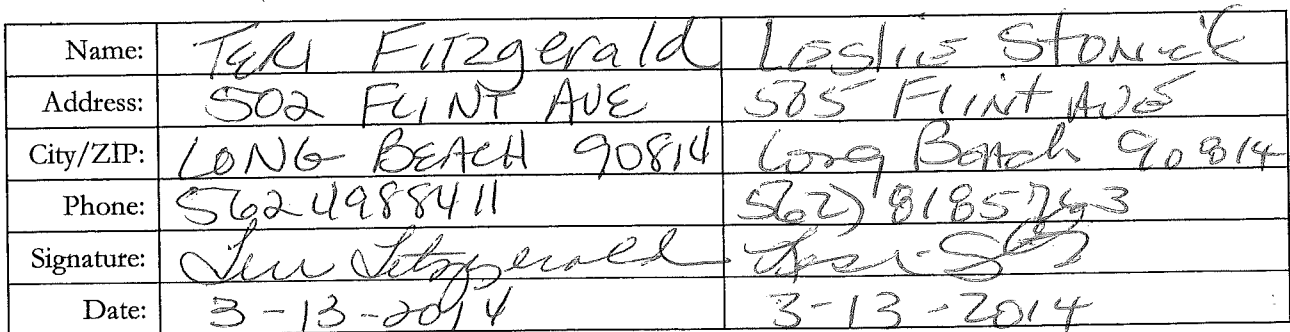 Name: TERI FITZgerald Leslie
Address: 502 FLINT AVE 505 Flint AVE
City/ZIP: LONG BEACH 90814 Long Beach 90814
Phone: 5624988411 562)
Signature: Teri Fitzgerald
Date: 3-13-2014 3-13-2014